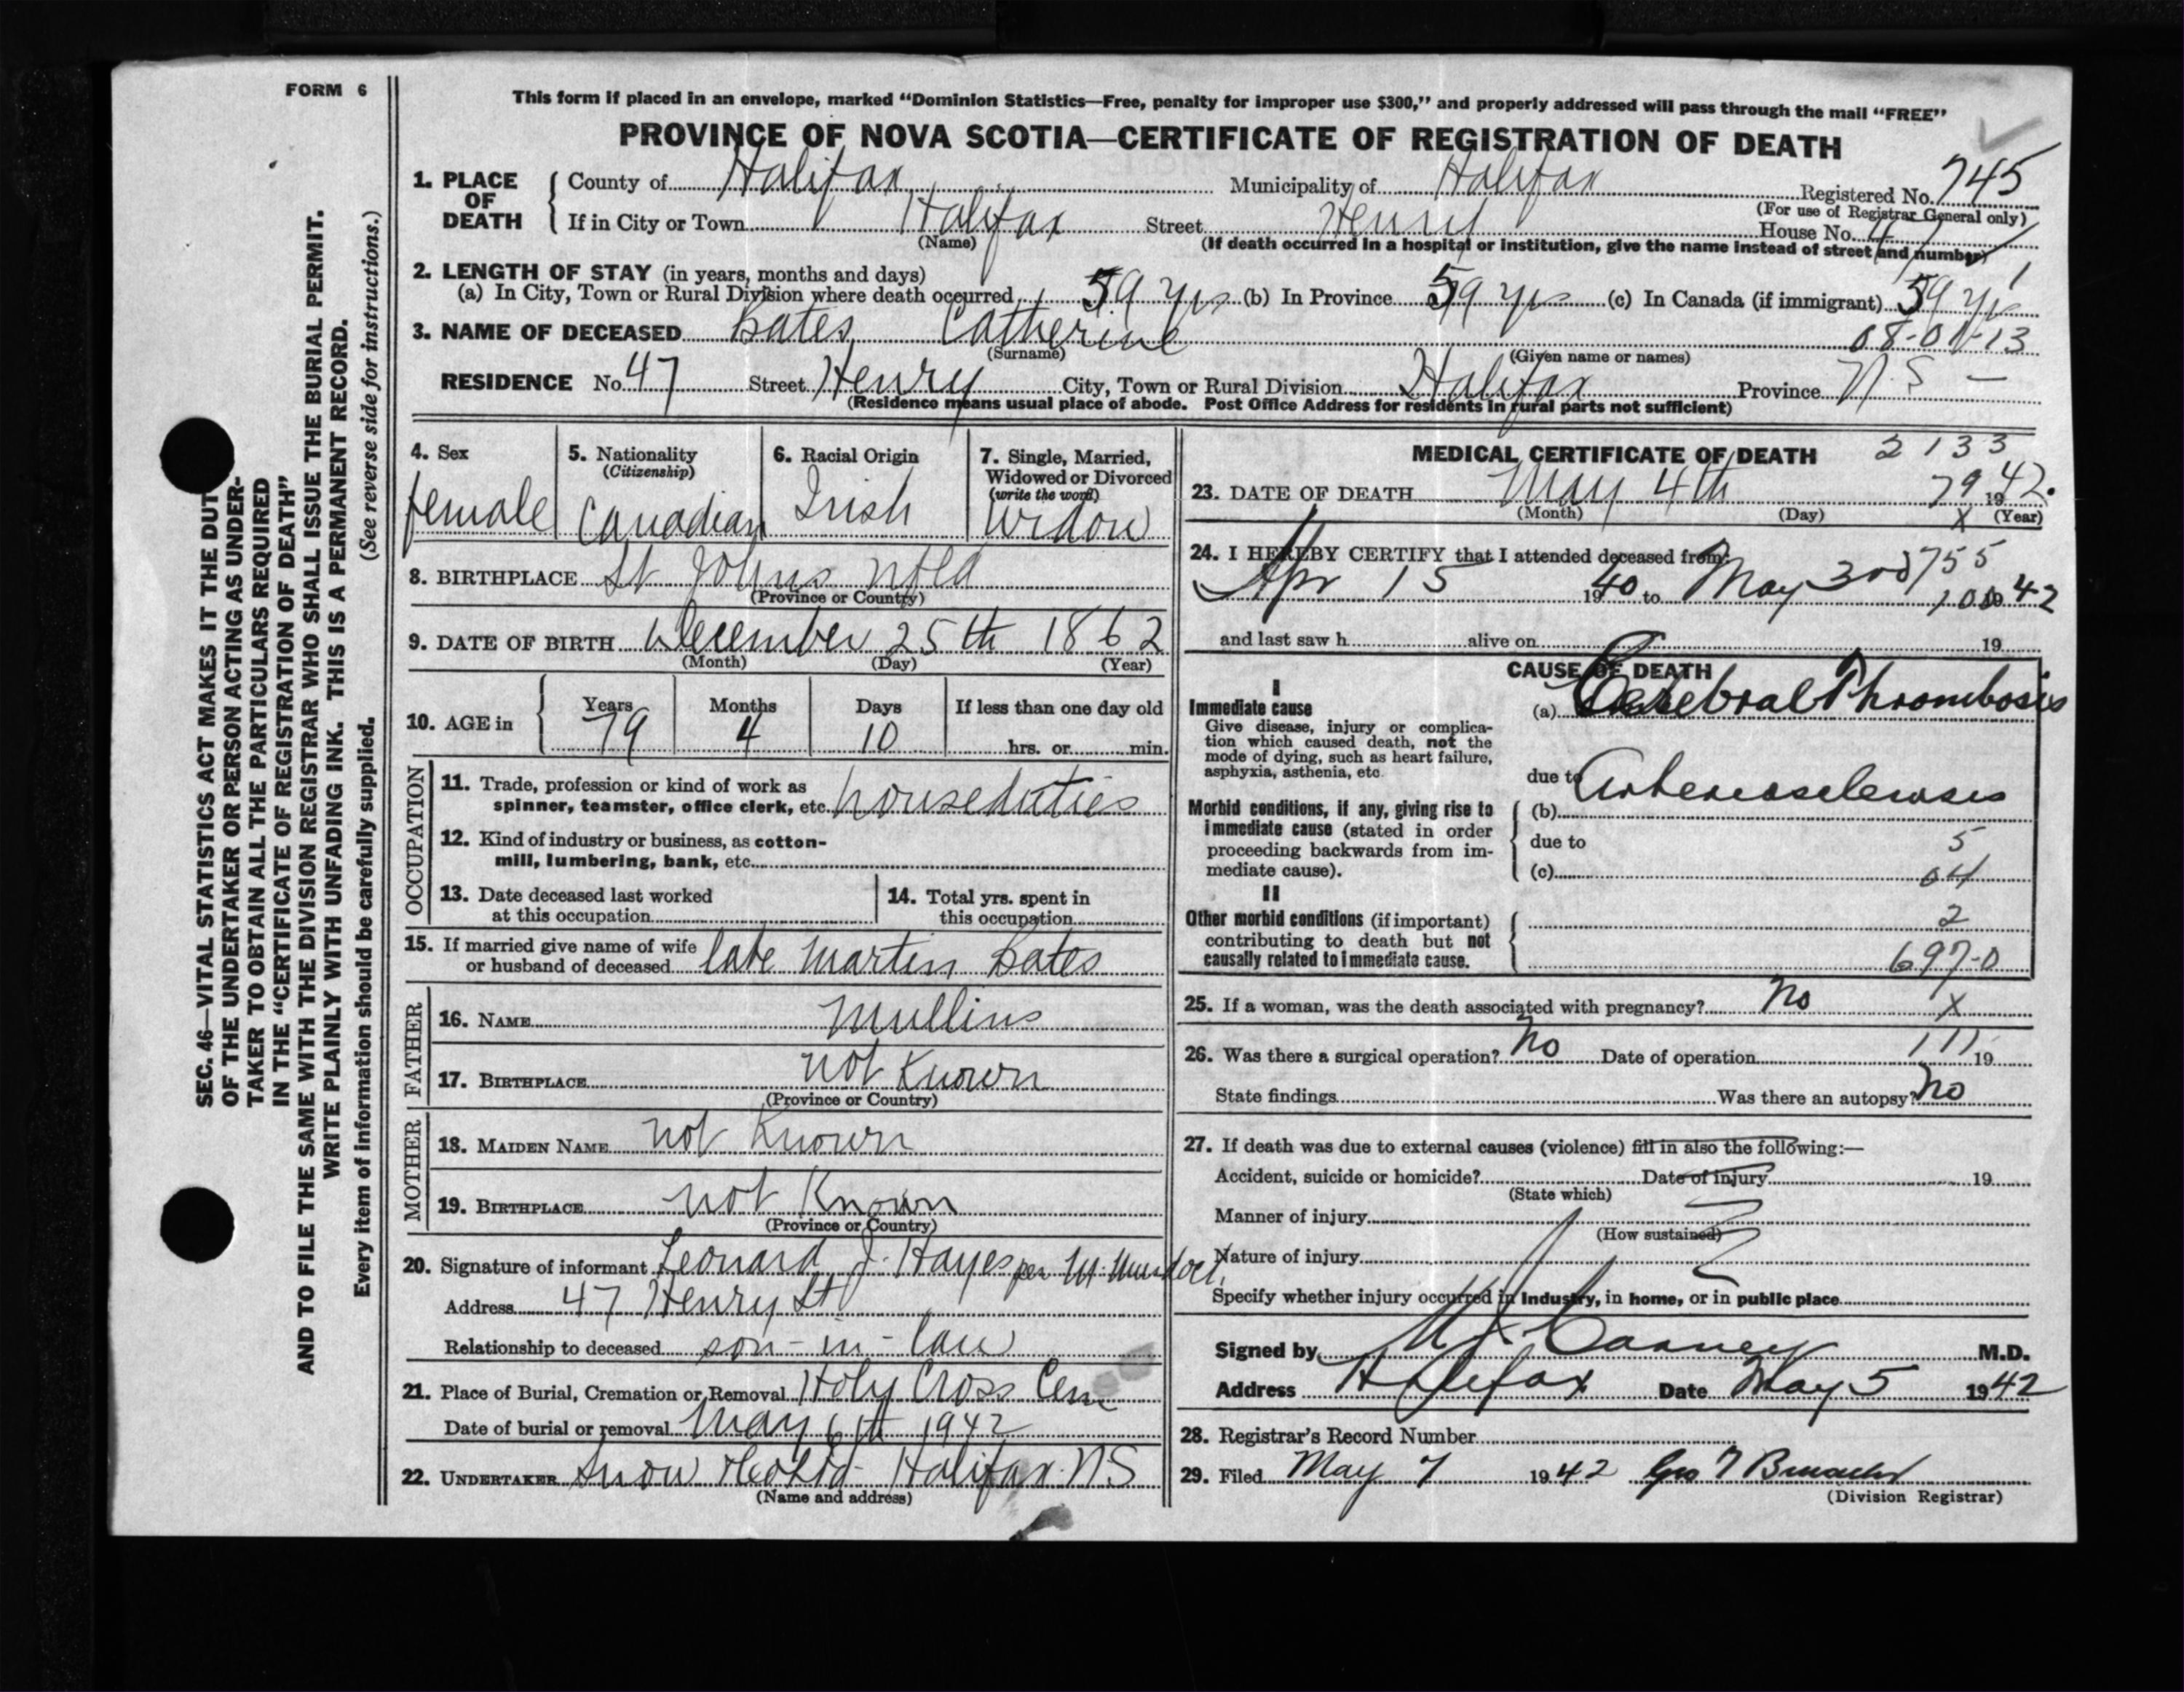 FORM 6
This form if placed in an envelope, marked “Dominion Statistics—Free, penalty for improper use $300,” and properly addressed will pass through the mail “FREE”
PROVINCE OF NOVA SCOTIA—CERTIFICATE OF REGISTRATION OF DEATH
1. PLACE OF DEATH { County of Halifax Municipality of Halifax Registered No. 745
(For use of Registrar General only)
If in City or Town Halifax Street Henry House No. 47
(Name) (If death occurred in a hospital or institution, give the name instead of street and number)
2. LENGTH OF STAY (in years, months and days)
(a) In City, Town or Rural Division where death occurred 59 yrs (b) In Province 59 yrs (c) In Canada (if immigrant) 59 yrs
3. NAME OF DECEASED Bates, Catherine
(Surname) (Given name or names)
RESIDENCE No. 47 Street Henry City, Town or Rural Division Halifax Province N.S —
(Residence means usual place of abode. Post Office Address for residents in rural parts not sufficient)
SEC. 46—VITAL STATISTICS ACT MAKES IT THE DUT
OF THE UNDERTAKER OR PERSON ACTING AS UNDER-
TAKER TO OBTAIN ALL THE PARTICULARS REQUIRED
IN THE “CERTIFICATE OF REGISTRATION OF DEATH”
AND TO FILE THE SAME WITH THE DIVISION REGISTRAR WHO SHALL ISSUE THE BURIAL PERMIT.
WRITE PLAINLY WITH UNFADING INK. THIS IS A PERMANENT RECORD.
Every item of information should be carefully supplied. (See reverse side for instructions.)
4. Sex
female
5. Nationality
(Citizenship)
Canadian
6. Racial Origin
Irish
7. Single, Married,
Widowed or Divorced
(write the word)
Widow
8. BIRTHPLACE St Johns Nfld
(Province or Country)
9. DATE OF BIRTH December 25th 1862
(Month) (Day) (Year)
10. AGE in { Years Months Days If less than one day old
79 4 10 hrs. or min.
OCCUPATION
11. Trade, profession or kind of work as
spinner, teamster, office clerk, etc. houseduties
12. Kind of industry or business, as cotton-
mill, lumbering, bank, etc.
13. Date deceased last worked
at this occupation
14. Total yrs. spent in
this occupation
15. If married give name of wife
or husband of deceased late Martin Bates
FATHER
16. NAME Mullins
17. BIRTHPLACE not Known
(Province or Country)
MOTHER
18. MAIDEN NAME not Known
19. BIRTHPLACE not Known
(Province or Country)
20. Signature of informant Leonard J. Hayes per M.
Address 47 Henry St
Relationship to deceased son-in-law
21. Place of Burial, Cremation or Removal Holy Cross Cem
Date of burial or removal May 6th 1942
22. UNDERTAKER Snow &Co Ltd Halifax N.S
(Name and address)
MEDICAL CERTIFICATE OF DEATH 2133
23. DATE OF DEATH May 4th 79 1942.
(Month) (Day) X (Year)
24. I HEREBY CERTIFY that I attended deceased from:
Apr 15 1940 to May 3rd 1942
and last saw h alive on 19
CAUSE OF DEATH
I
Immediate cause
Give disease, injury or complica-
tion which caused death, not the
mode of dying, such as heart failure,
asphyxia, asthenia, etc.
(a) Cerebral Thrombosis
due to Arteriosclerosis
Morbid conditions, if any, giving rise to
immediate cause (stated in order
proceeding backwards from im-
mediate cause).
(b)
due to 5
(c) 04
II
Other morbid conditions (if important)
contributing to death but not
causally related to immediate cause.
2
697-0
25. If a woman, was the death associated with pregnancy? No X
26. Was there a surgical operation? No Date of operation 111 19
State findings Was there an autopsy? No
27. If death was due to external causes (violence) fill in also the following:—
Accident, suicide or homicide? Date of injury 19
(State which)
Manner of injury
(How sustained)
Nature of injury
Specify whether injury occurred in Industry, in home, or in public place
Signed by M.D.
Address Halifax Date May 5 1942
28. Registrar’s Record Number
29. Filed May 7 1942
(Division Registrar)